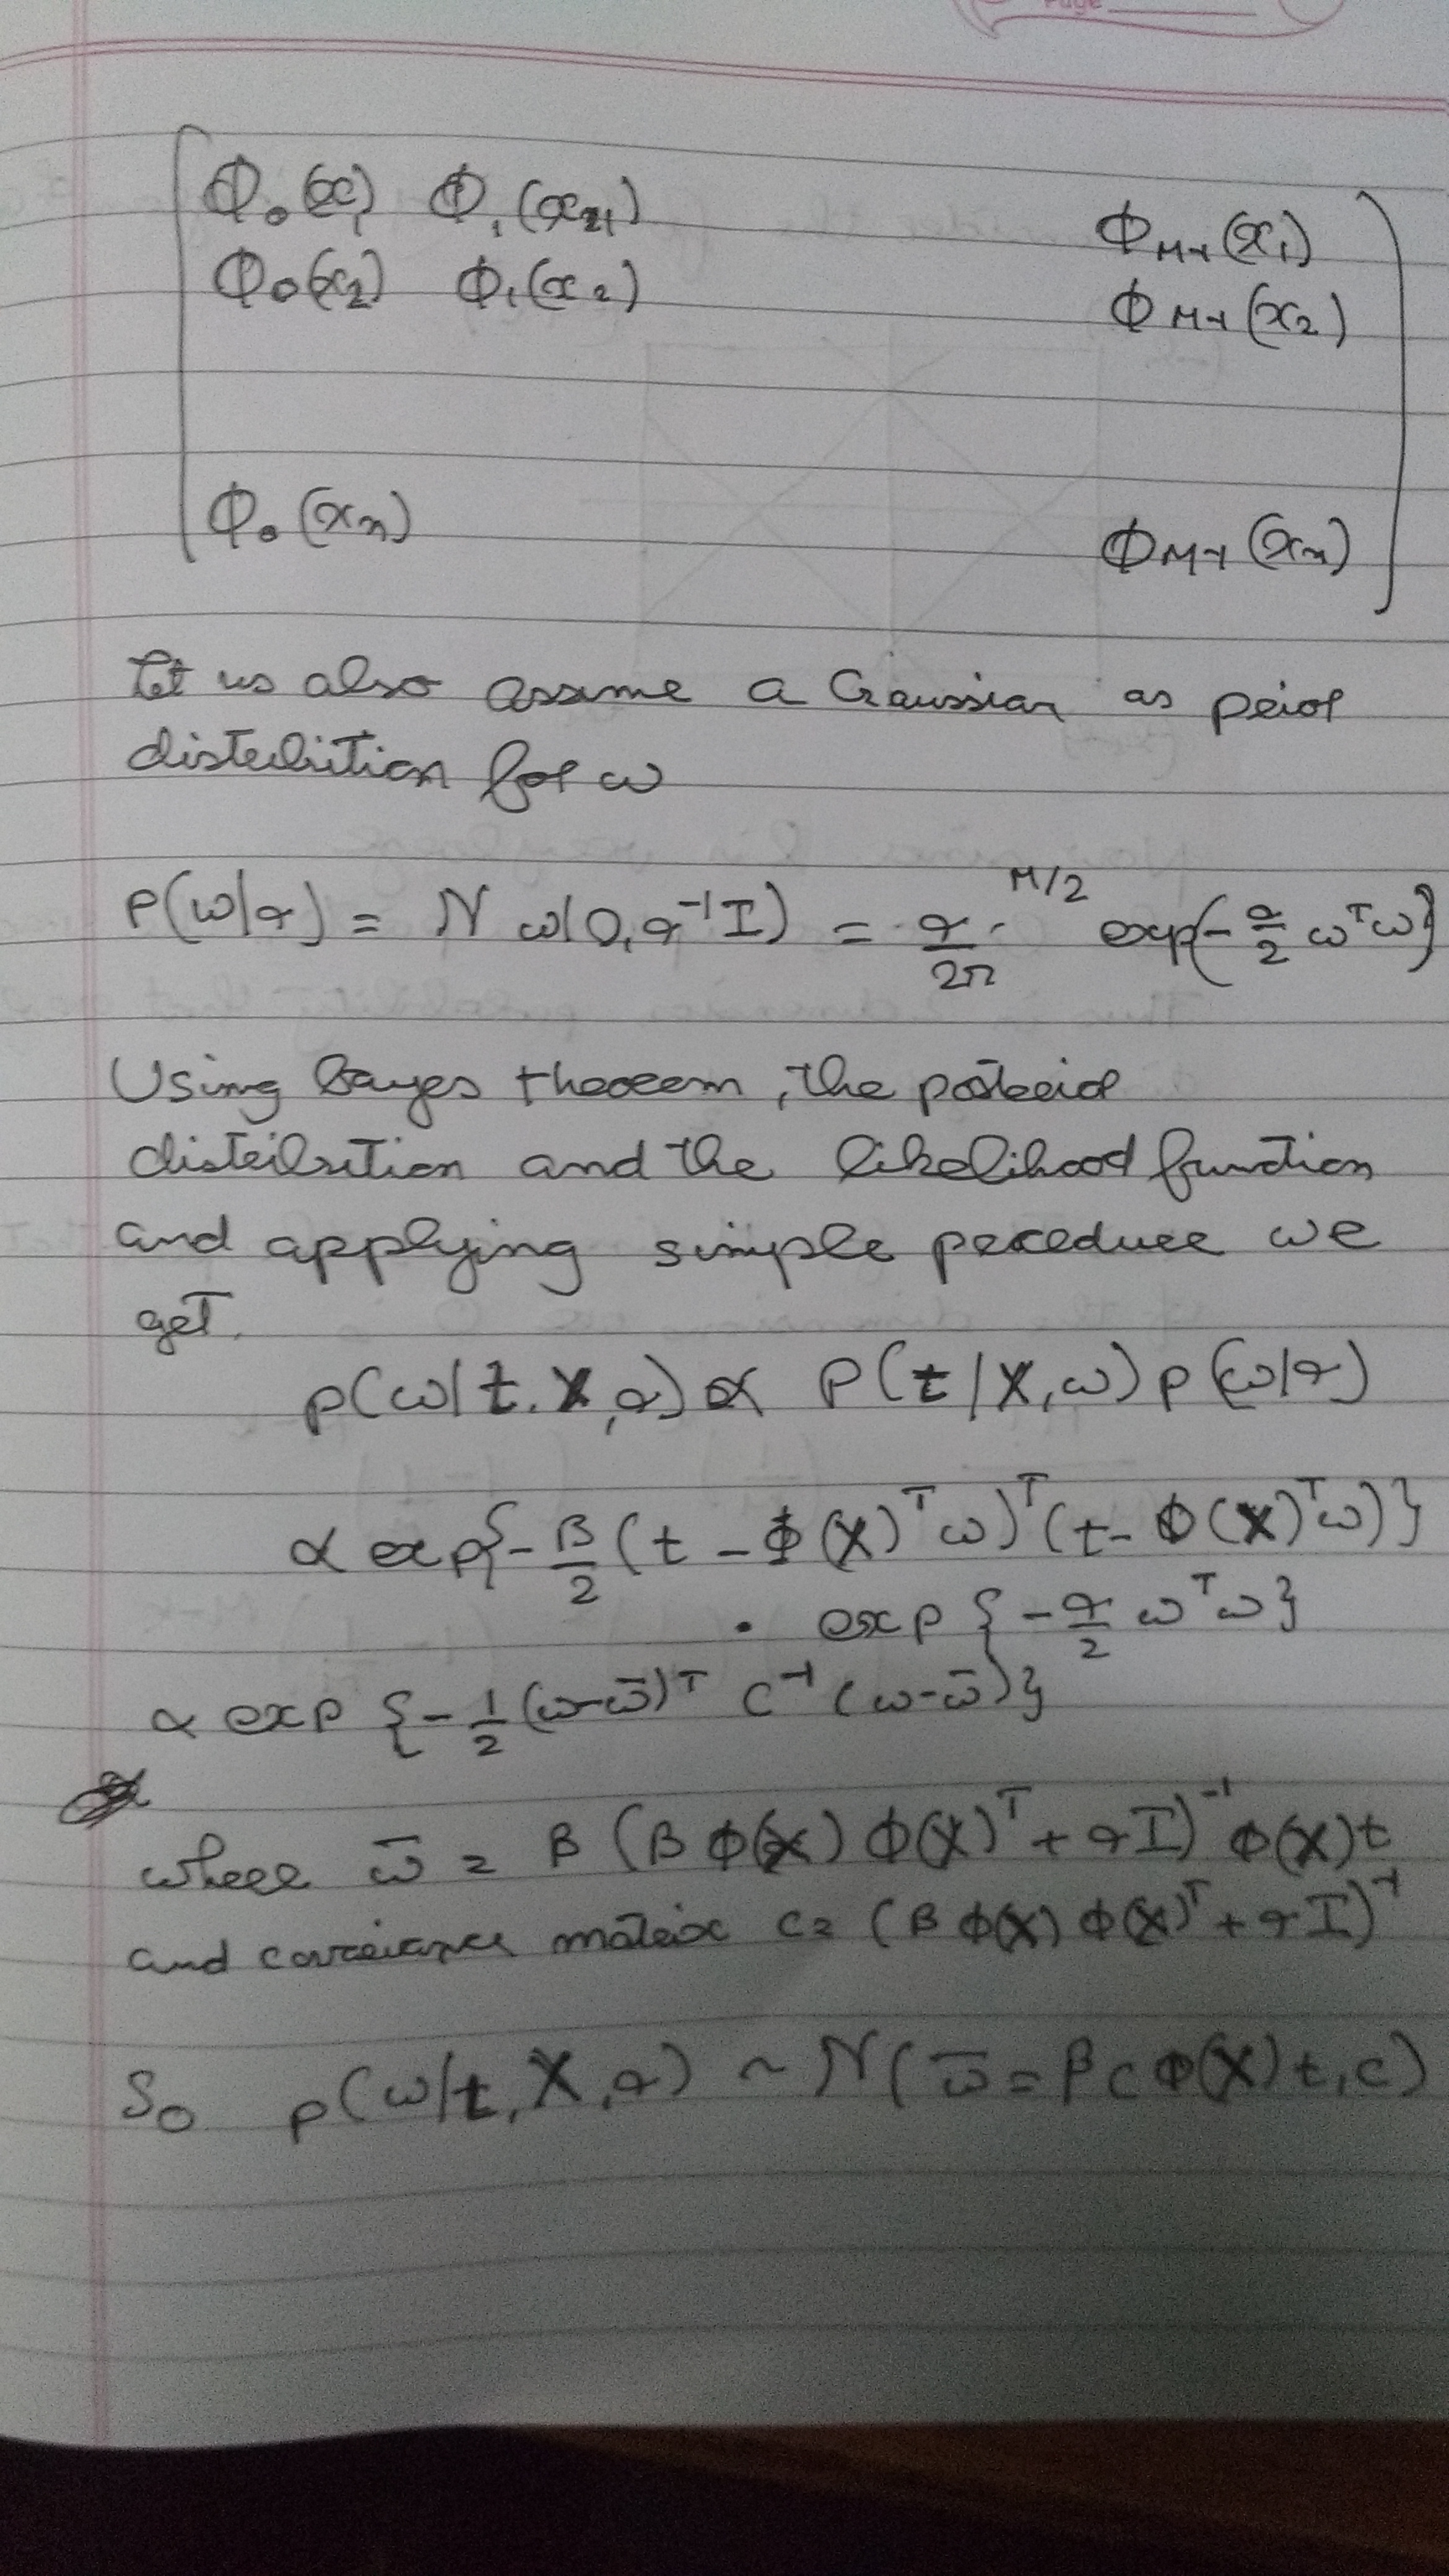 Page
Φ₀(x₁) Φ₁(x₁) Φ_{M-1}(x₁)
Φ₀(x₂) Φ₁(x₂) Φ_{M-1}(x₂)
Φ₀(x_n) Φ_{M-1}(x_n)
Let us also assume a Gaussian as prior
distribution for ω
P(ω|α) = N ω|0, α⁻¹I) = α/2π ^{M/2} exp{-α/2 ωᵀω}
Using bayes theorem, the posterior
distribution and the likelihood function
and applying simple procedure we
get.
p(ω|t, X, α) ∝ P(t/X, ω) p(ω|α)
∝ exp{-β/2 (t - Φ(X)ᵀω)ᵀ(t - Φ(X)ᵀω)}
. exp {-α/2 ωᵀω}
∝ exp {-1/2 (ω-ω̄)ᵀ C⁻¹ (ω-ω̄)}
where ω̄ = β (β Φ(X) Φ(X)ᵀ + αI)⁻¹ Φ(X)t
and covariance matrix C = (β Φ(X) Φ(X)ᵀ + αI)⁻¹
So p(ω/t, X, α) ~ N(ω̄ = βCΦ(X)t, C)